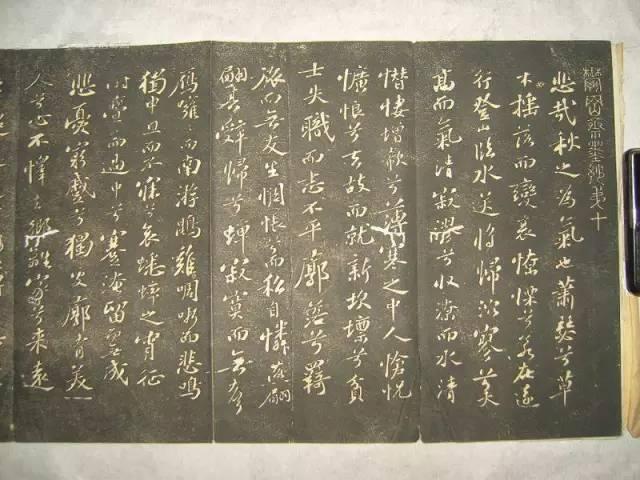 鬱岡齋墨妙第十
悲哉秋之為氣也蕭瑟兮草
木搖落而變衰憭慄兮若在遠
行登山臨水送將歸泬寥兮天
高而氣清寂漻兮收潦而水清
憯悽增欷兮薄寒之中人愴怳
懭悢兮去故而就新坎壈兮貧
士失職而志不平廓落兮羇
旅而無友生惆悵兮而私自憐燕翩
翩其辭歸兮蟬寂寞而無聲
鴈雝雝而南游鵾雞啁哳而悲鳴
獨申旦而不寐兮哀蟋蟀之宵征
時亹亹而過中兮蹇淹留而無成
悲憂窮戚兮獨處廓有美一
人兮心不懌去鄉離家兮來遠